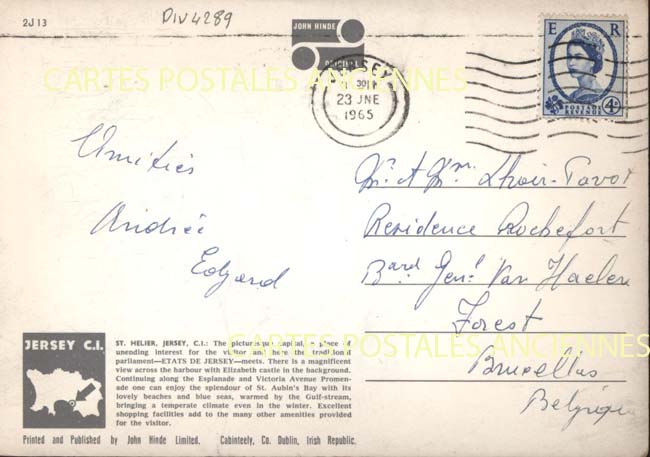 2J13
DIV4289
JOHN HINDE
ORIGINAL
JERSEY
23 JNE
1965
E R
POSTAGE
REVENUE
4D
CARTES POSTALES ANCIENNES
Amitiés
Andrée
Edgard
Mr. & Mme.
Residence Rochefort
Bard Genl Van Haelen
Forest
Bruxelles
Belgique
JERSEY C.I.
ST. HELIER, JERSEY, C.I.: The picturesque capital, a place of
unending interest for the visitor and here the traditional
parliament—ETATS DE JERSEY—meets. There is a magnificent
view across the harbour with Elizabeth castle in the background.
Continuing along the Esplanade and Victoria Avenue Promen-
ade one can enjoy the splendour of St. Aubin's Bay with its
lovely beaches and blue seas, warmed by the Gulf-stream,
bringing a temperate climate even in the winter. Excellent
shopping facilities add to the many other amenities provided
for the visitor.
CARTES POSTALES ANCIENNES
Printed and Published by John Hinde Limited, Cabinteely, Co. Dublin, Irish Republic.